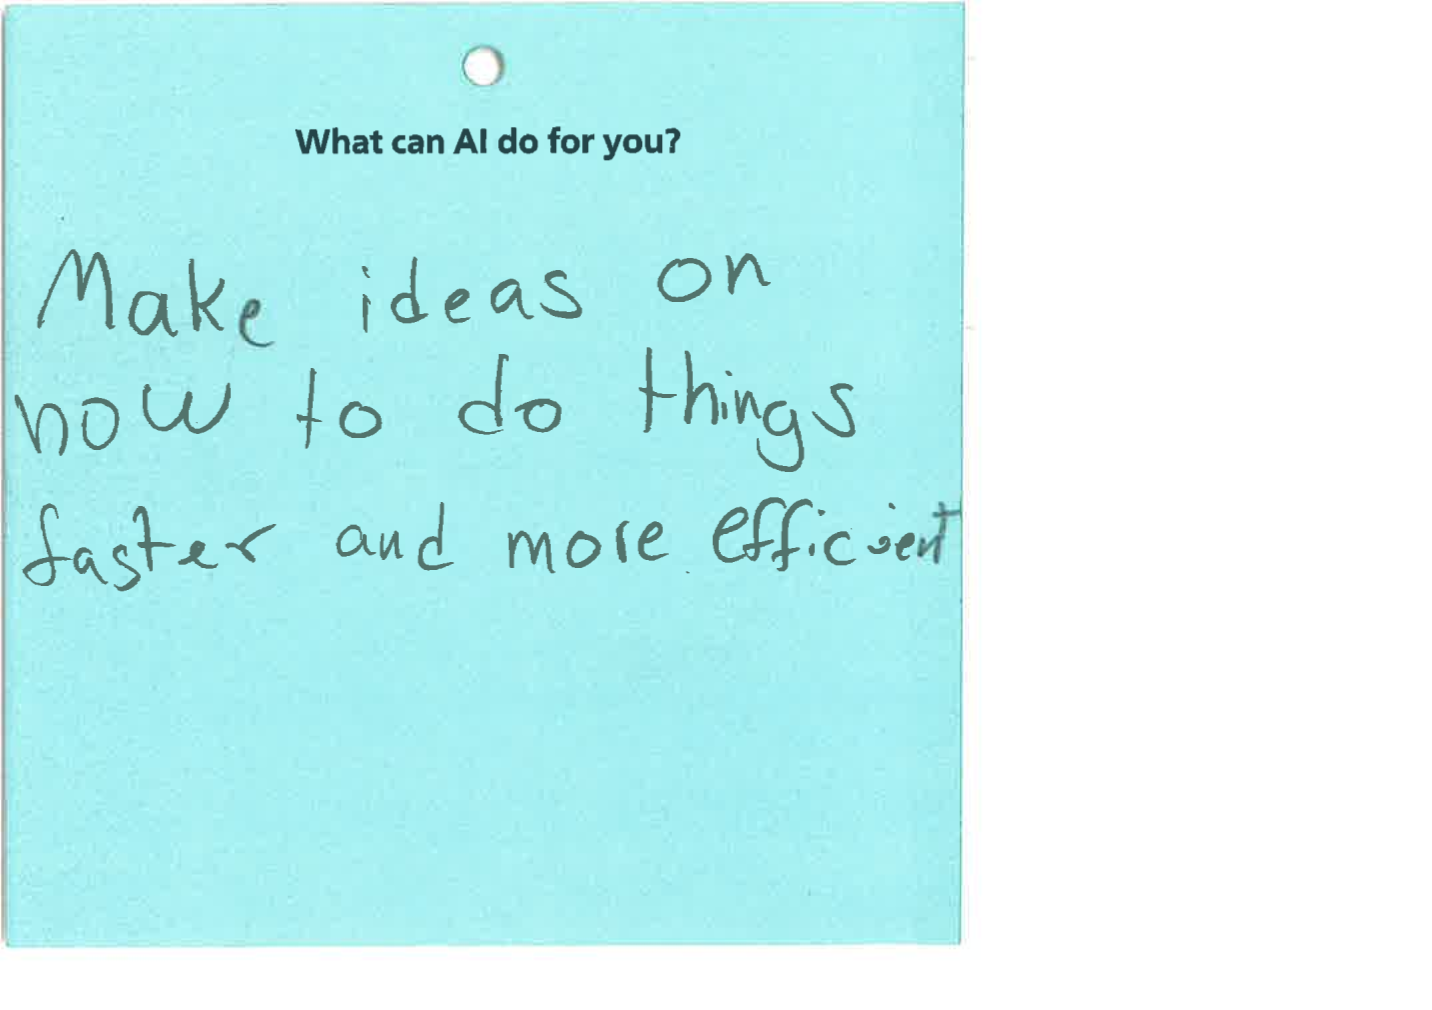 What can AI do for you?
Make ideas on
how to do things
faster and more efficient